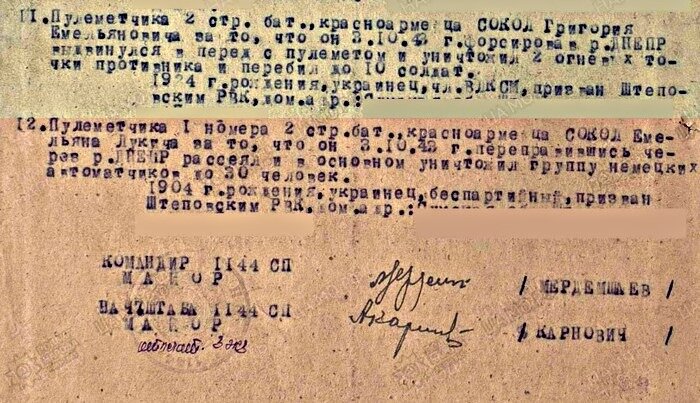 11. Пулеметчика 2 стр. бат., красноармейца СОКОЛ Григория
Емельяновича за то, что он 3.10.43 г. форсировав р. ДНЕПР
выдвинулся в перед с пулеметом и уничтожил 2 огневых то-
чки противника и перебил до 10 солдат.
1924 г. рождения, украинец, чл. ВЛКСМ, призван Штепо-
вским РВК, дом. адр.:
12. Пулеметчика I номера 2 стр. бат., красноармейца СОКОЛ Еме-
льяна Лукича за то, что он 3.10.43 г. переправившись че-
рез р. ДНЕПР рассеял и в основном уничтожил группу немецких
автоматчиков до 30 человек.
1904 г. рождения, украинец, беспартийный, призван
Штеповским РВК, дом. адр.:
КОМАНДИР 1144 СП
МАЙОР / МЕРДЕМШАЕВ /
НАЧ ШТАБА 1144 СП
МАЙОР / КАРНОВИЧ /
отпечат. 3 экз